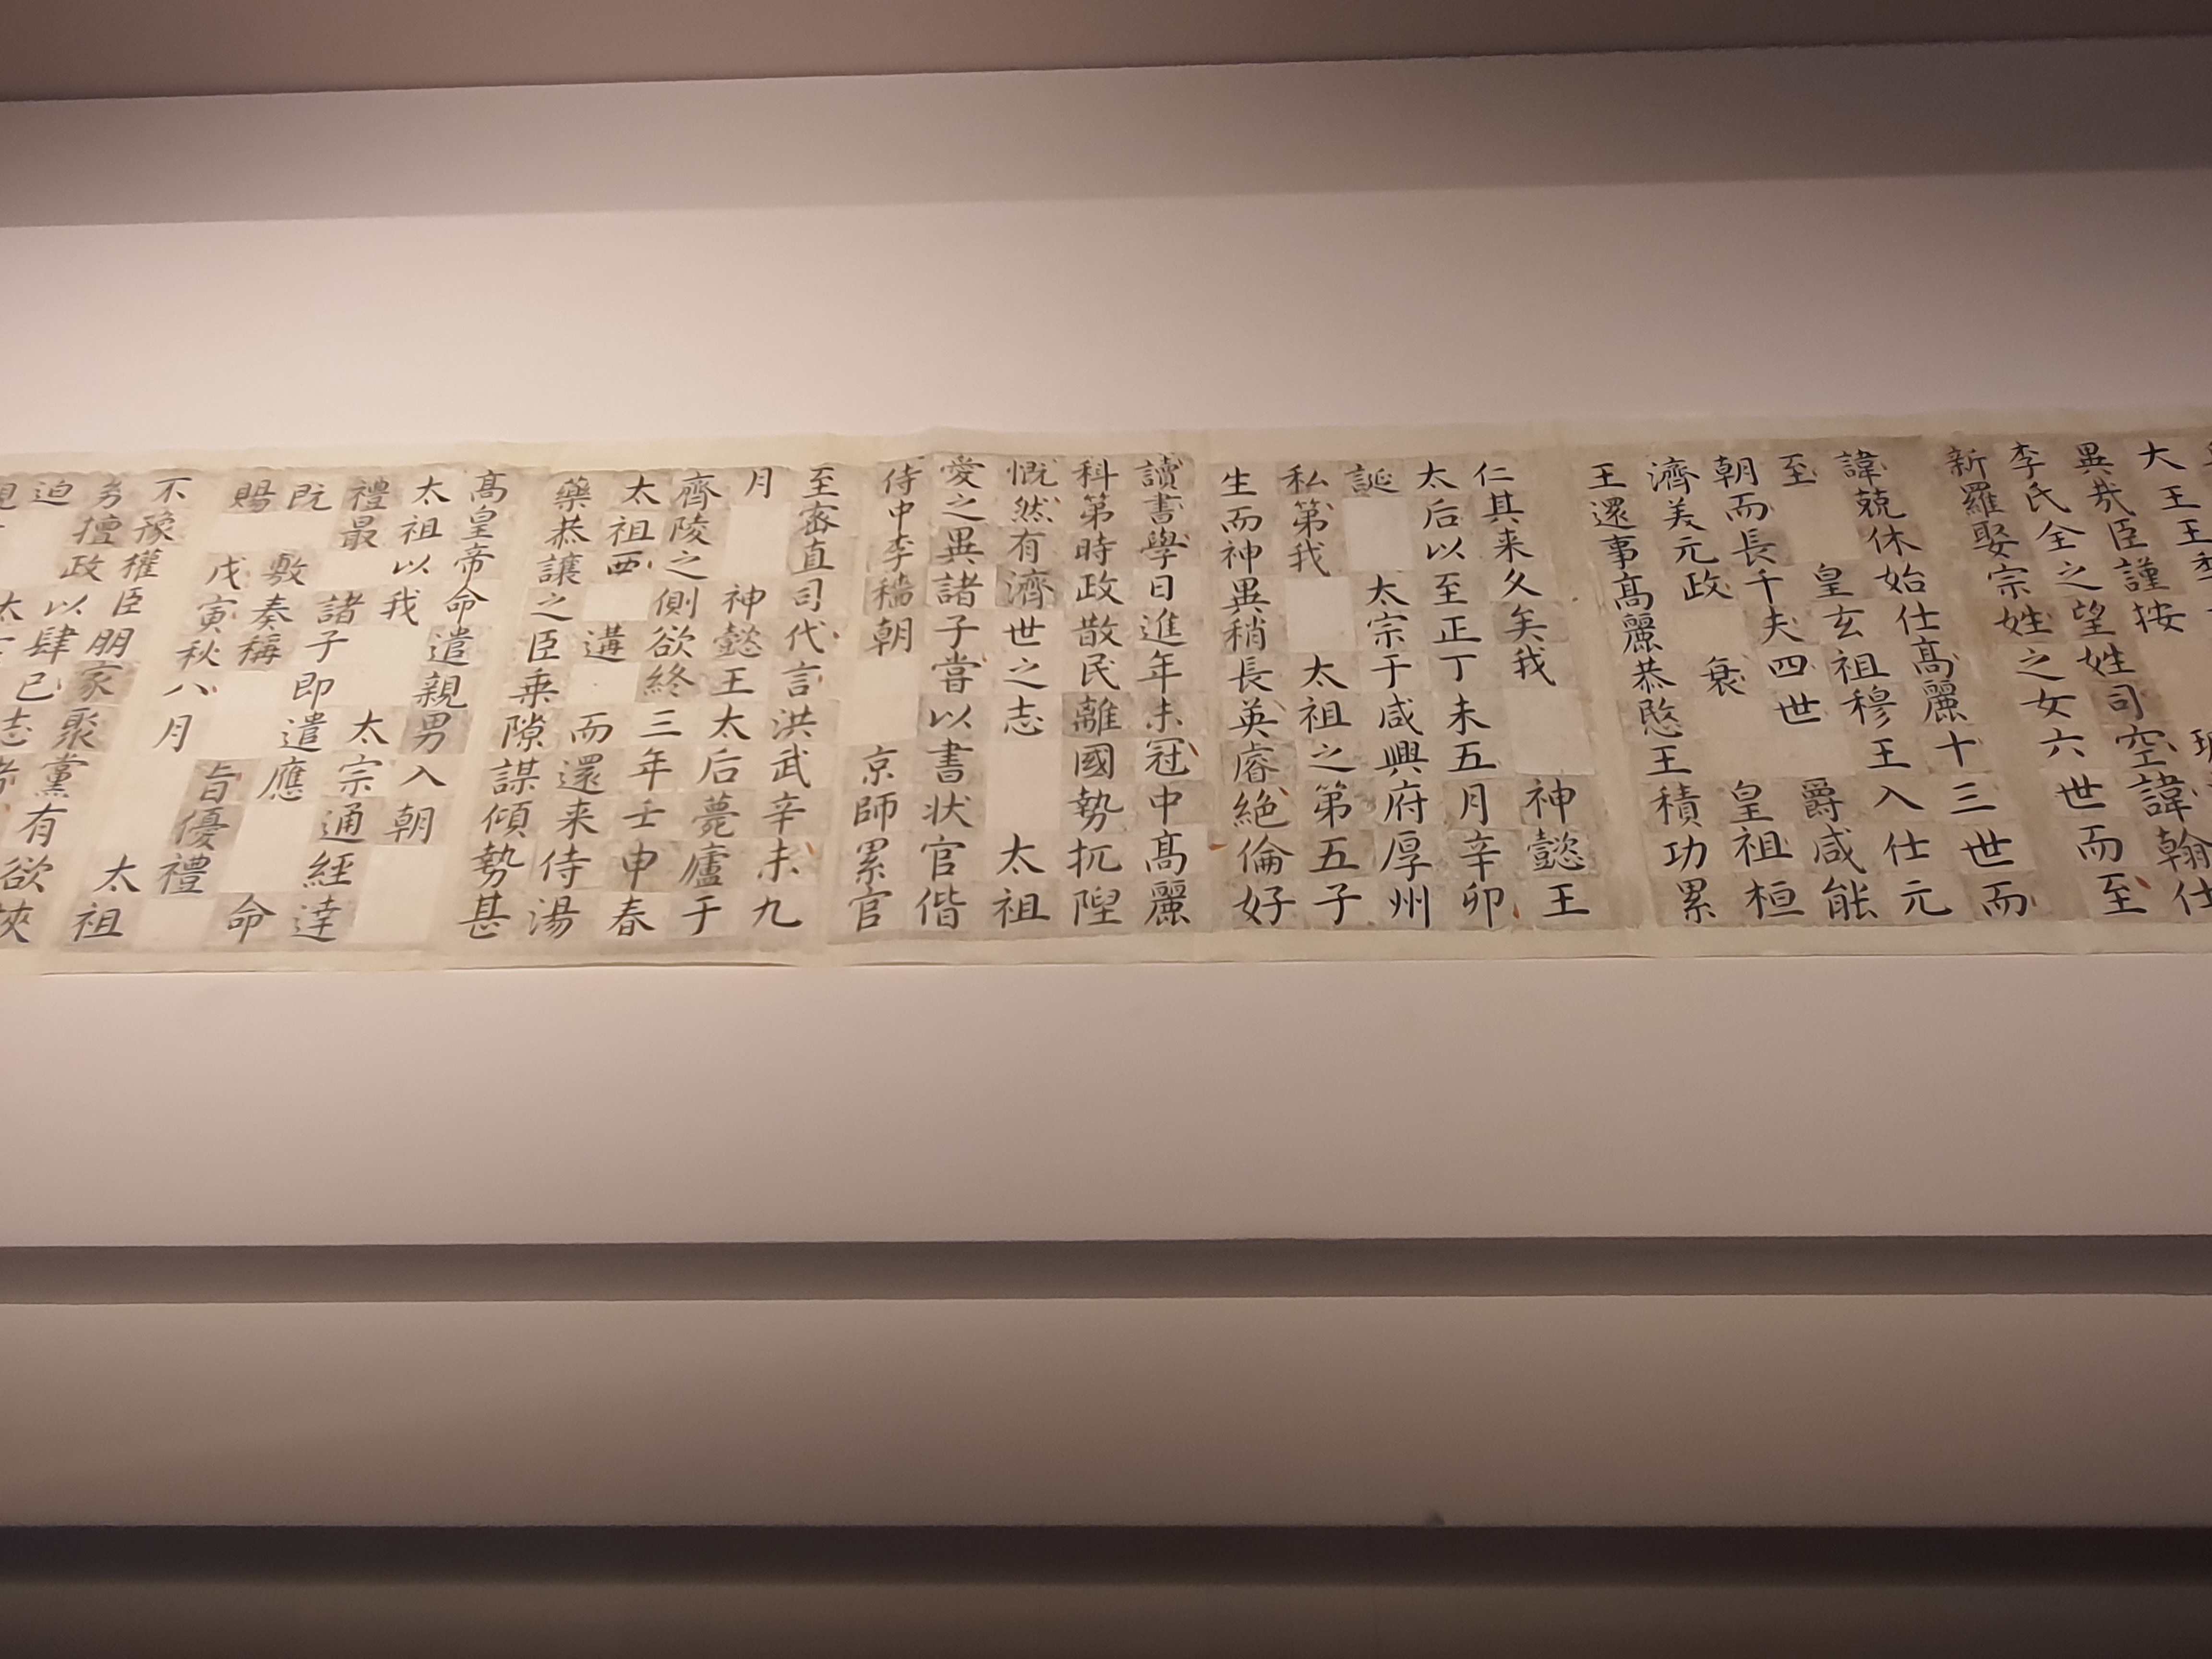 異哉臣謹按
李氏全之望姓司空諱翰仕
新羅娶宗姓之女六世而至
諱兢休始仕高麗十三世而
至 皇玄祖穆王入仕元
朝而長千夫四世 爵咸能
濟美元政 衰 皇祖桓
王還事高麗恭愍王積功累
仁其来久矣我 神懿王
太后以至正丁未五月辛卯
誕 太宗于咸興府厚州
私第我 太祖之第五子
生而神異稍長英睿絕倫好
讀書學日進年未冠中高麗
科第時政散民離國勢抗陧
慨然有濟世之志 太祖
愛之異諸子嘗以書状官偕
侍中李穡朝 京師累官
至密直司代言洪武辛未九
月 神懿王太后薨廬于
齊陵之側欲終三年壬申春
太祖西 遘 而還来侍湯
藥恭讓之臣乗隙謀傾勢甚
高皇帝命遣親男入朝
太祖以我 太宗通經達
禮最 諸子即遣應 命
既 敷奏稱 旨優禮
賜 戊寅秋八月 太祖
不豫權臣朋家聚黨有欲挾
㓜擅政以肆己志
迫